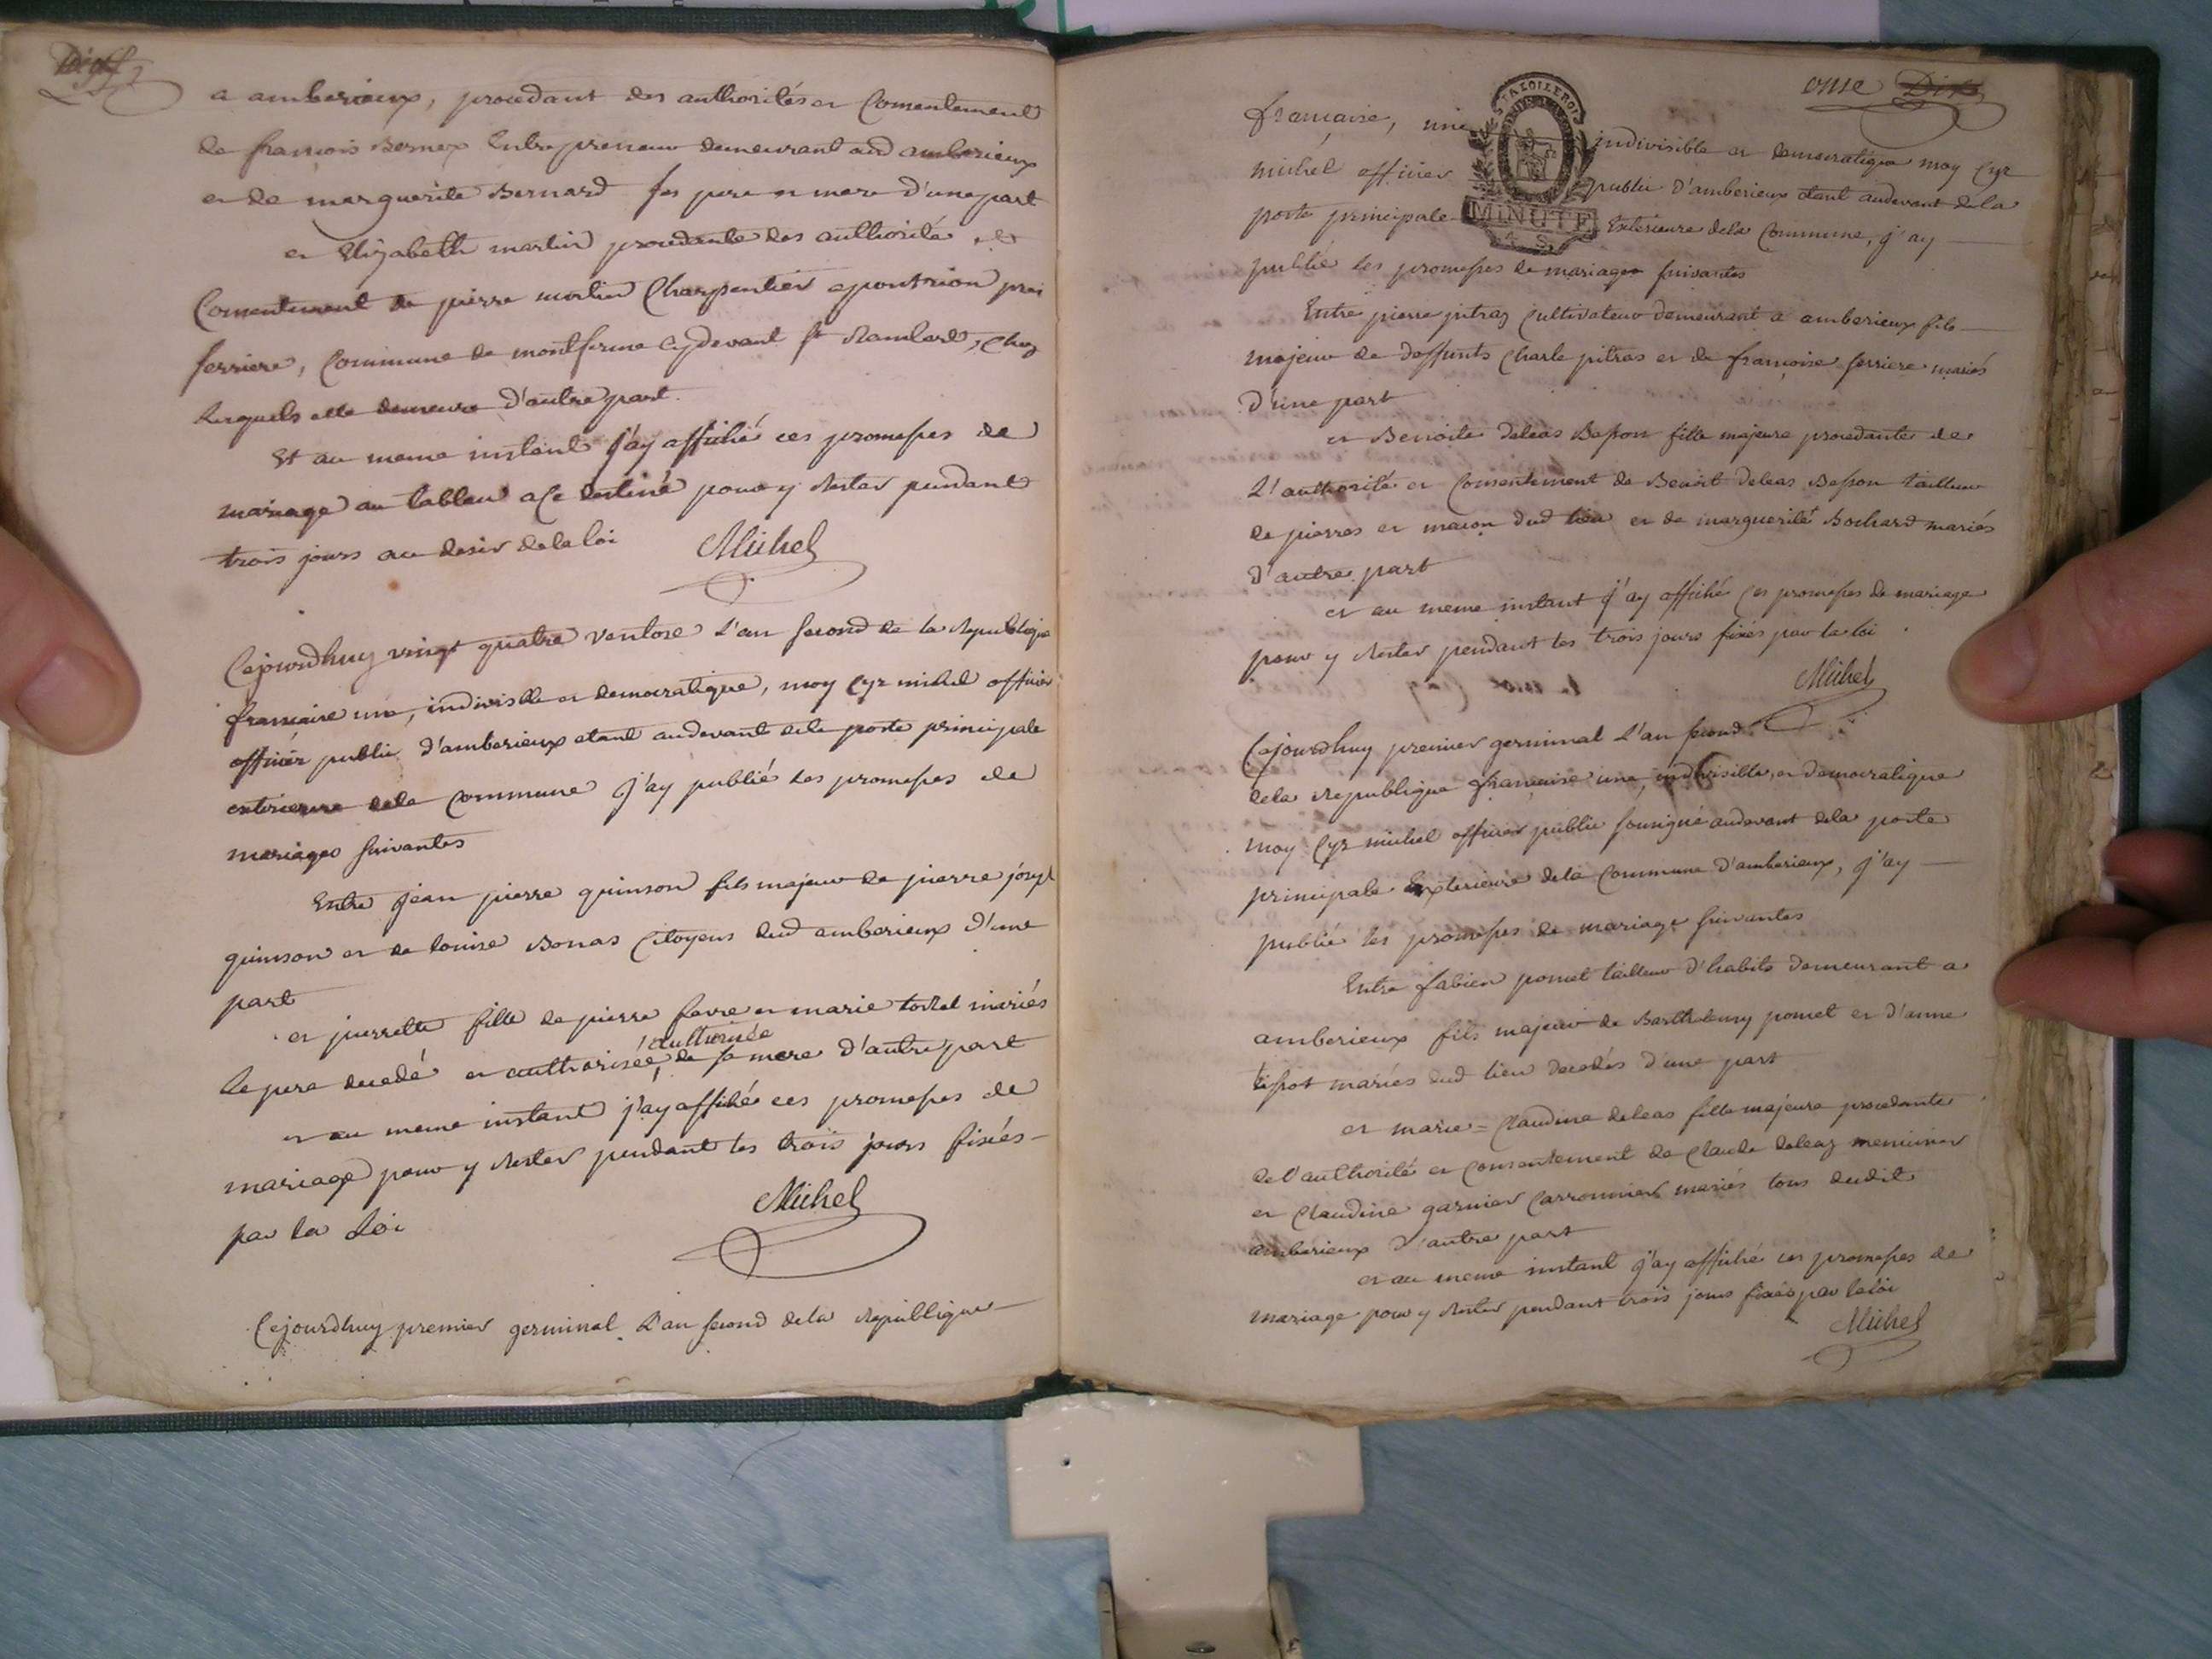 a amberieux, procedant des authorités et Consentement
de francois Bernex Entrepreneur demeurant aud amberieux
et de marguerite Bernard ses pere et mere d'une part
et Elizabeth martin procedante des authorité et
Consentement de pierre martin Charpentier
ferriere, Commune de montferme cydevant st Rambert, chez
lesquels elle demeure d'autre part.
Et au meme instant j'ay affiché ces promesses de
mariage au tableau a ce destiné pour y rester pendant
trois jours au desir de la loi
Michel
Cejourdhuy vingt quatre ventose l'an second de la republique
francaise une, indivisible et democratique, moy Cyr michel officier
officier public d'amberieux etant audevant de la porte principale
exterieure de la Commune j'ay publié les promesses de
mariages suivantes
Entre jean pierre quinson fils majeur de pierre joseph
quinson et de louise Bonas Citoyens dud amberieux d'une
part
et pierrette fille de pierre favre et marie tortel mariés
le pere decedé et authorisée, de sa mere d'autre part
authorisée
et au meme instant j'ay affiché ces promesses de
mariage pour y rester pendant les trois jours fixés
par la Loi
Michel
Cejourdhuy premier germinal L'an second de la republique
onse Dix
francaise, une indivisible et democratique moy Cyr
michel officier public d'amberieux etant audevant de la
porte principale Exterieure de la Commune, j'ay
MINUTE
4 S.
publié les promesses de mariages suivantes
Entre pierre pitras Cultivateur demeurant a amberieux fils
majeur de deffunts Charle pitras et de francoise ferriere mariés
d'une part
et Benoite deleas Besson fille majeure procedante de
L'authorité et Consentement de Benoit deleas Besson tailleur
de pierres et macon dud lieu et de marguerite Bochard mariés
d'autre part
et au meme instant j'ay affiché ces promesses de mariage
pour y rester pendant les trois jours fixés par la loi
Michel
Cejourdhuy premier germinal L'an second
de la republique francaise une, indivisible, et democratique
moy Cyr michel officier public sousigné audevant de la porte
principale Exterieure de la Commune d'amberieux, j'ay
publié les promesses de mariage suivantes
Entre fabien pomet tailleur d'habits demeurant a
amberieux fils majeur de Barthelemy pomet et d'anne
tissot mariés dud lieu decedés d'une part
et marie = Claudine deleas fille majeure procedante
de l'authorité et consentement de Claude deleas menuisier
et Claudine garnier Carronnier mariés tous dudit
amberieux d'autre part
et au meme instant j'ay affiché ces promesses de
mariage pour y rester pendant trois jours fixés par la loi
Michel